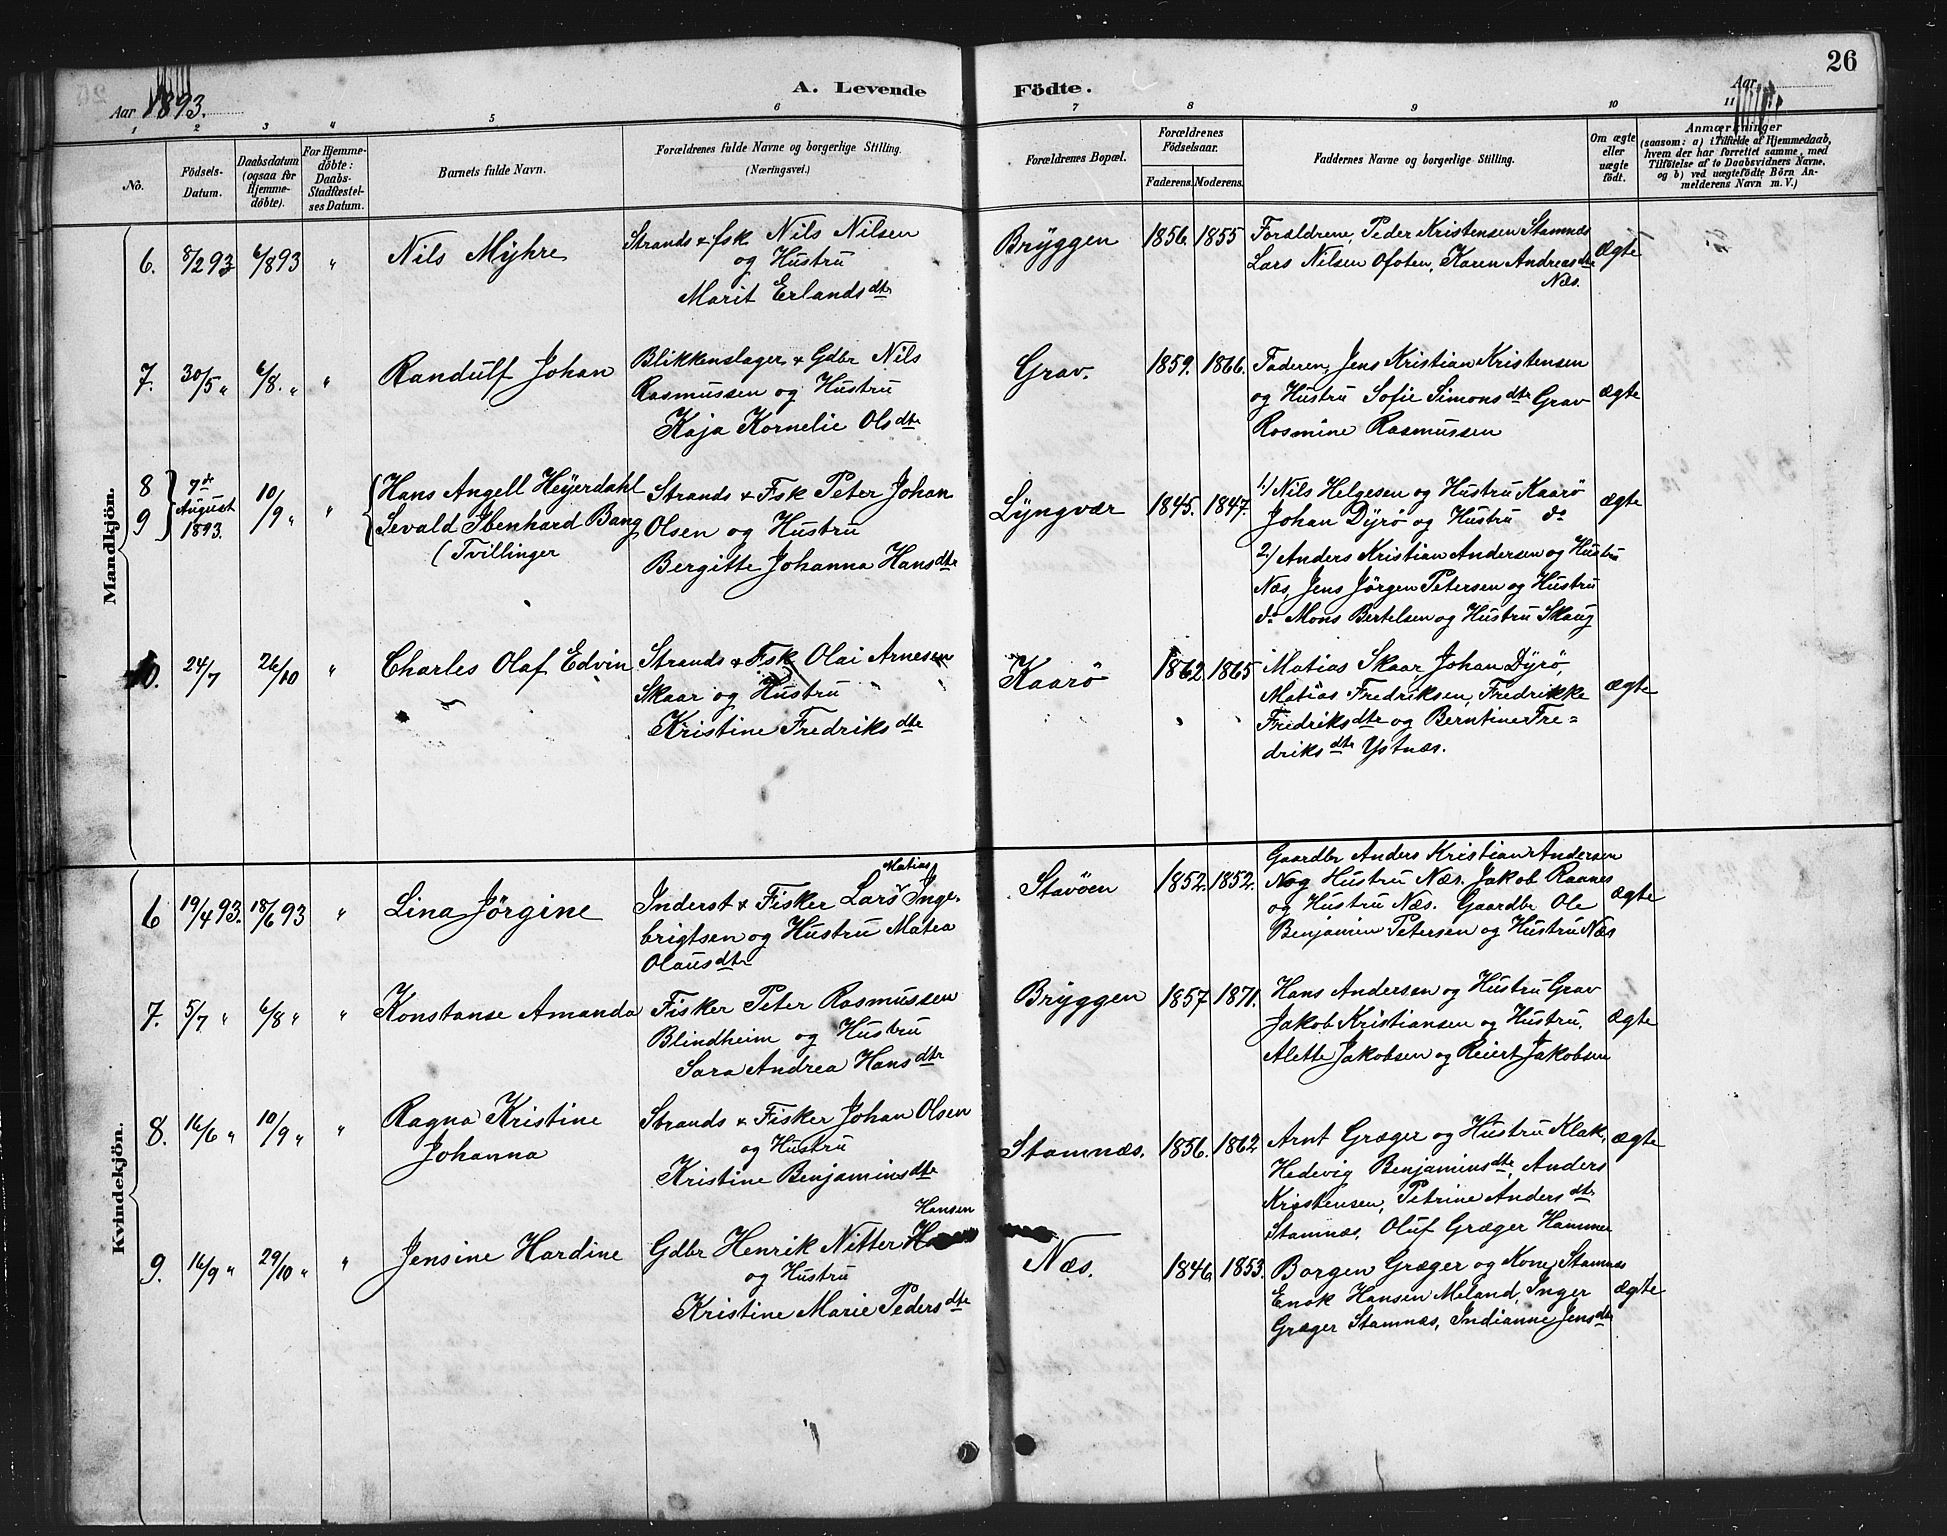 26
A. Levende Födte.
Aar 1893.
Aar
1 2 3 4 5 6 7 8 9 10 11
No.
Födsels-Datum.
Daabsdatum (ogsaa for Hjemme-döbte).
For Hjemme-döbte: Daabs-Stadfæstel-ses Datum.
Barnets fulde Navn.
Forældrenes fulde Navne og borgerlige Stilling.
(Næringsvei.)
Forældrenes Bopæl.
Forældrenes Födselsaar.
Faderens. Moderens.
Faddernes Navne og borgerlige Stilling.
Om ægte eller uægte födt.
Anmærkninger
(saasom: a) i Tilfælde af Hjemmedaab, hvem der har forrettet samme, med Tilföielse af to Daabsvidners Navne, og b) ved uægtefödte Börn Anmelderens Navn m. V.)
Mandkjön.
6. 8/2 93 6/8 93 " Nils Myhre
Strands & fsk Nils Nilsen
og Hustru
Marit Erlandsdtr
Bryggen 1856. 1855
Foraldrene, Peder Kristensen Stamnæs
Lars Nilsen Ofoten, Karen Andreasdtr
Næs.
Ægte
7. 30/5 " 6/8. " " Randulf Johan
Blikkenslager & Gdbr Nils
Rasmussen og Hustru
Kaja Kornelie Olsdtr
Grav. 1859. 1866.
Faderen, Jens Kristian Kristensen
og Hustru Sofie Simonsdtr Grav
Rosmine Rasmussen
ægte
8
9
7de August 1893. 10/9 " "
Hans Angell Heyerdahl
Sevald Ibenhard Bang
(Tvillinger
Strands & Fsk Peter Johan
Olsen og Hustru
Bergitte Johanna Hansdtr
Lyngvær 1845. 1847.
1) Nils Helgesen og Hustru Kaarö
Johan Dyrö og Hustru do
2) Anders Kristian Andersen og Hustru
Næs, Jens Jörgen Petersen og Hustru
do Mons Bertelsen og Hustru Skaug
ægte
10. 24/7 26/10 " Charles Olaf Edvin
Strands & Fsk Olai Arnesen
Skaar og Hustru
Kristine Fredriksdtr
Kaarö 1862 1865
Matias Skaar, Johan Dyrö,
Matias Fredriksen, Fredrikke
Fredriksdtr og Berntine Fre=
driksdtr Ystnæs.
ægte
Kvindekjön.
6 19/4 93. 18/6 93 " Lina Jörgine
Matias
Inderst & Fisker Lars Inge-
brigtsen og Hustru Matea
Olausdtr
Stavöen 1852. 1852.
Gaardbr Anders Kristian Andersen
Nog Hustru Næs. Jakob Raanes
og Hustru Næs. Gaardbr Ole
Benjamin Petersen og Hustru Næs
ægte
7. 5/7 " 6/8 " " Konstanse Amanda
Fisker Peter Rasmussen
Blindheim og Hustru
Sara Andrea Hansdtr
Bryggen 1857 1871.
Hans Andersen og Hustru Grav
Jakob Kristiansen og Hustru,
Alette Jakobsen og Reiert Jakobsen
ægte
8. 16/6 " 10/9 " " Ragna Kristine
Johanna
Strands & Fisker Johan Olsen
og Hustru
Kristine Benjaminsdtr
Stamnæs. 1856. 1862
Arnt Græger og Hustru Klak,
Hedevig Benjaminsdtr, Anders
Kristensen, Petrine Andersdtr
Stamnæs, Oluf Græger Hammer
ægte
9. 16/9 " 29/10 " " Jensine Hardine
Hansen
Gdbr Henrik Nitter
og Hustru
Kristine Marie Pedersdtr
Næs. 1846. 1853.
Borgen Græger og Kone Stamnæs
Enok Hansen Meland, Inger
Græger Stamnæs, Indianne Jensdtr
ægte